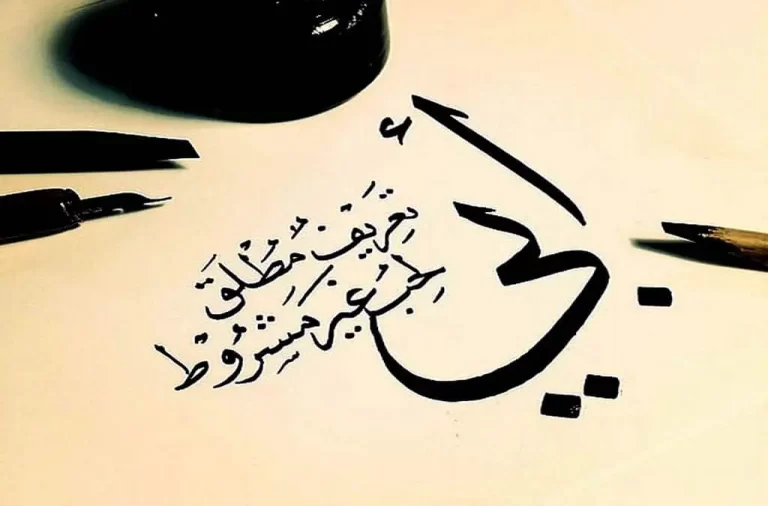 أبي
تعريف مطلق
لحب غير مشروط